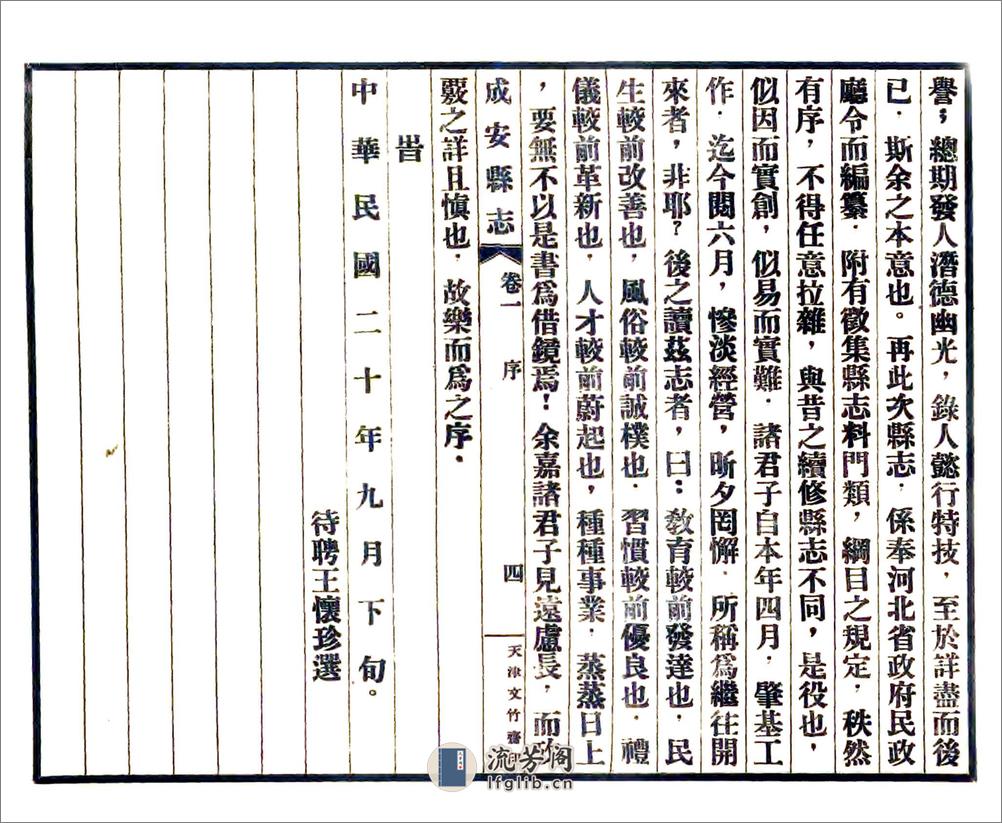 譽；總期發人潛德幽光，錄人懿行特技，至於詳盡而後
已．斯余之本意也。再此次縣志．係奉河北省政府民政
廳令而編纂．附有徵集縣志料門類，綱目之規定，秩然
有序，不得任意拉雜，與昔之續修縣志不同，是役也，
似因而實創，似易而實難．諸君子自本年四月．肇基工
作．迄今閱六月，慘淡經營，昕夕罔懈．所稱爲繼往開
來者，非耶？後之讀茲志者，曰：敎育較前發達也．民
生較前改善也，風俗較前誠樸也．習慣較前優良也．禮
儀較前革新也．人才較前蔚起也，種種事業．蒸蒸日上
，要無不以是書爲借鏡焉！余嘉諸君子見遠慮長，而
成安縣志
卷一
序
四
天津文竹齋
覈之詳且愼也．故樂而爲之序．
旹
中華民國二十年九月下旬。
待聘王懷珍選
流芳阁
lfglib.cn